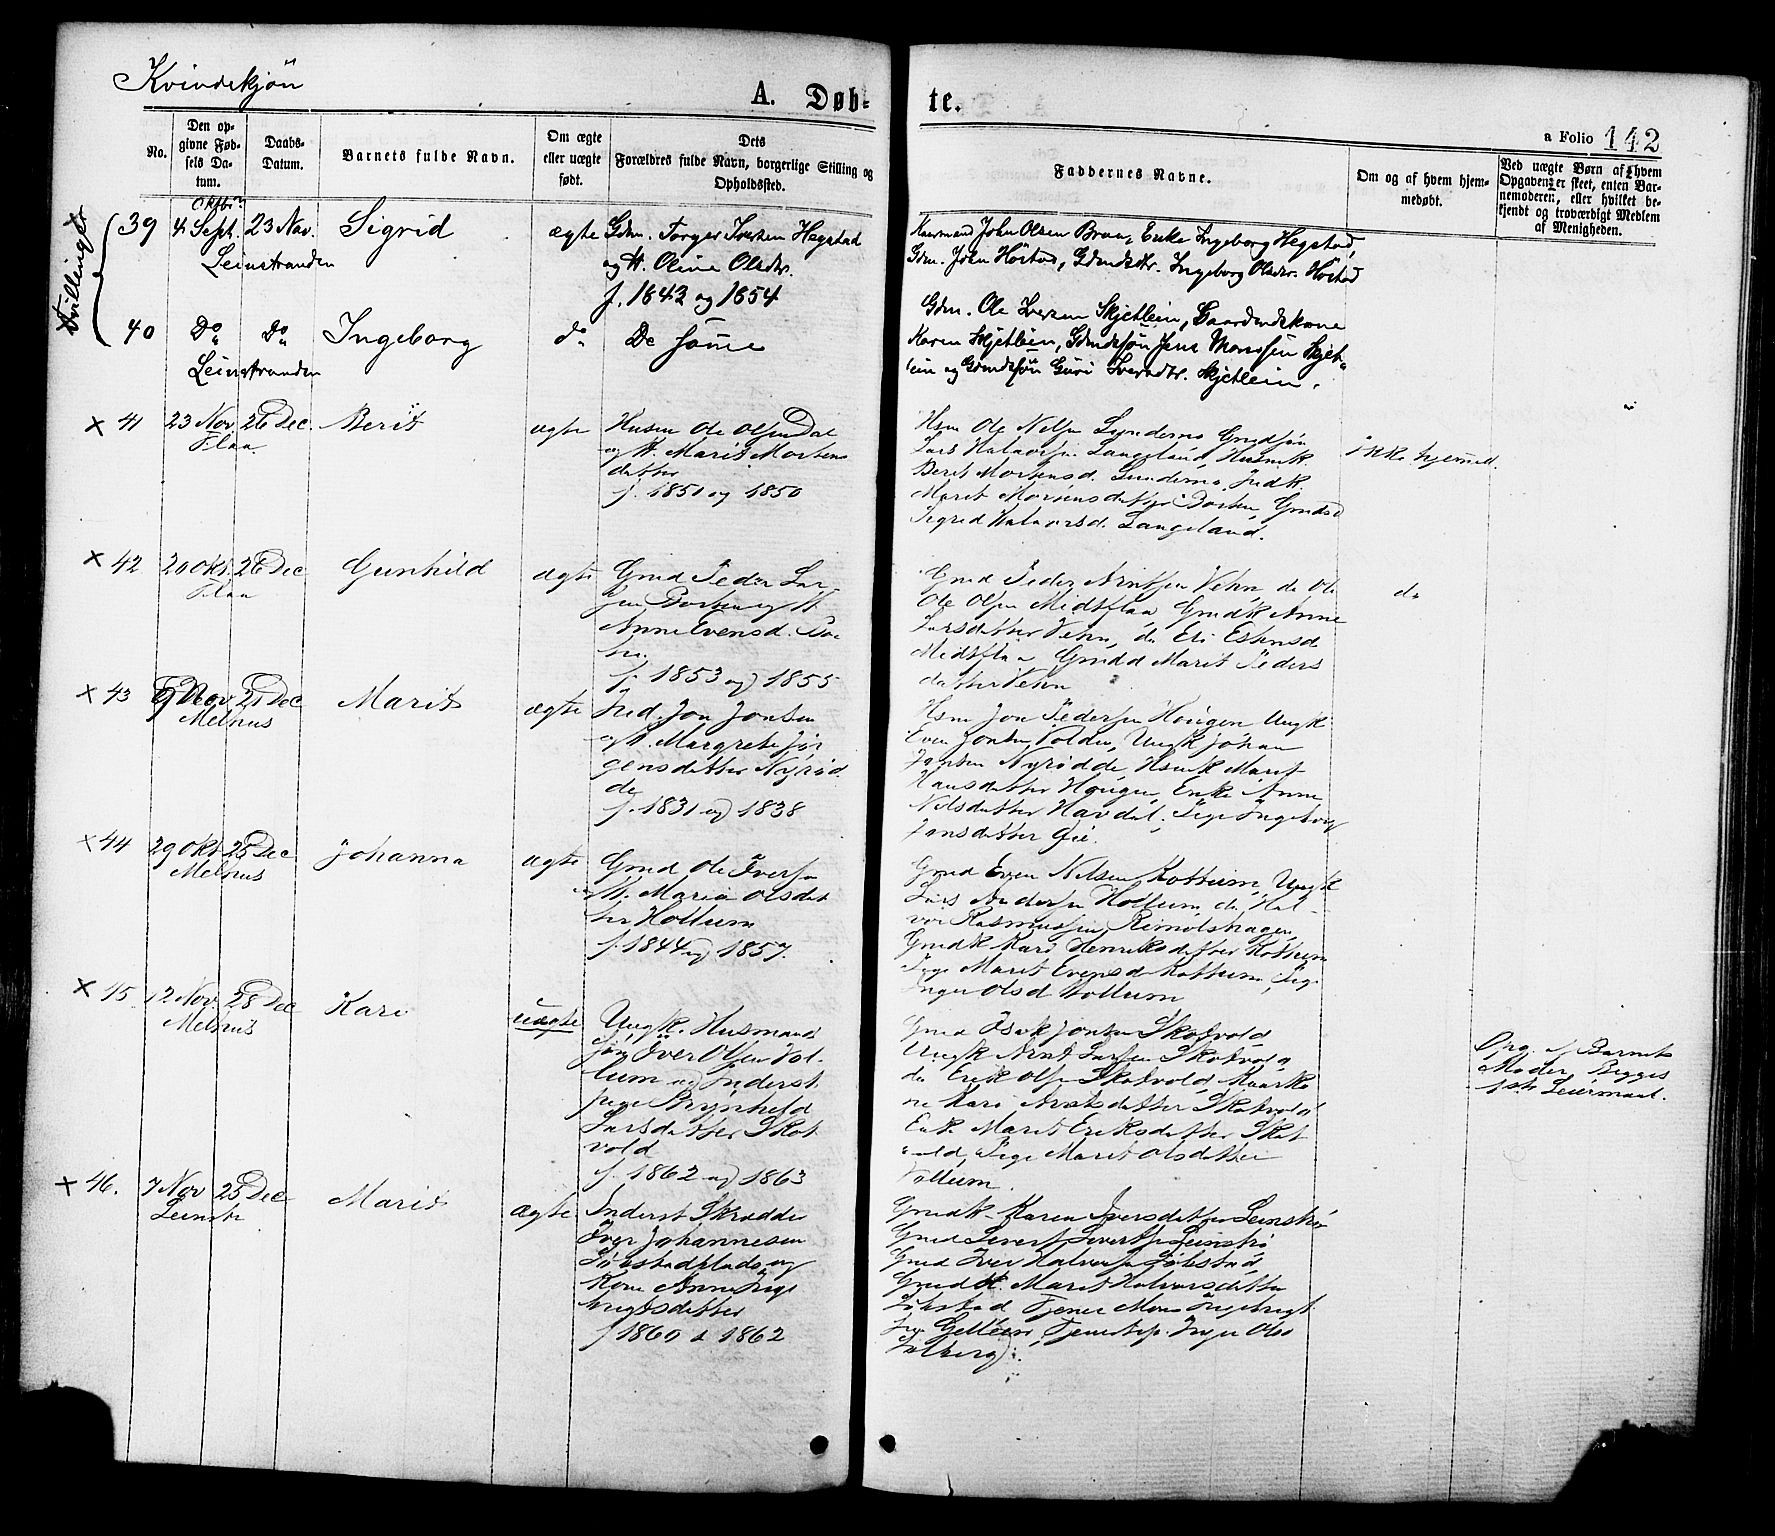 Kvindekjøn
A. Døb-
te.
a Folio 142
No.
Den op-
givne Fød-
sels Da-
tum.
Daabs-
Datum.
Barnets fulde Navn.
Om ægte
eller uægte
født.
Dets
Forældres fulde Navn, borgerlige Stilling og
Opholdssted.
Faddernes Navne.
Om og af hvem hjem-
medøbt.
Ved uægte Børn af hvem
Opgaven er skeet, enten Bar-
nemoderen, eller hvilket be-
kjendt og troværdigt Medlem
af Menigheden.
Tvillinger
39 4 Sept. 23 Nov. Sigrid ægte Gdm. Torger Iversen Hegstad
Leinstranden og H. Oline Olsdtr.
f. 1842 og 1854
John Olsen Bruu, Enke Ingeborg Hegstad,
Gdm. John Höstad, Ingeborg Olsdtr. Höstad
40 Do Do Ingeborg do De samme
Leinstranden
Gdm. Ole Iversen Skjetlein, Gaardmandskone
Karen Skjetlein, Gdmdsøn Jens Monssen Skjet-
lein og Guri Iversdtr. Skjetlein.
x 41 23 Nov. 26 Dec. Berit ægte Husm Ole Olsen Dal
Flaa og H. Marit Mortens
datter
f. 1851 og 1850
Hsm Ole Nelsen
Lars Halvorsen Langeland, Husmk.
Beret Mortensd.
Maret Mortensdatter Borten, Gmdsd
Sigrid Halvorsd. Langeland.
ikke hjemmed.
x 42 20 Okt. 26 Dec Gunhild ægte Gmd Peder Lar
Flaa sen Borten og H.
Anne Evensd. Bor
ten
f. 1853 og 1855
Gmd Peder Arntsen Vehn, do Ole
Ole Olsen Midtflaa, Gmdk Anne
Larsdatter Vehn, do Eli Estensd
Midtflaa Gmdd Marit Peders
datter Vehn
do
x 43 9 Nov. 25 Dec Marit ægte Ind. Jon Jonsen
Melhus og H. Margrete Jør
gensdatter Nyrød
de
f. 1831 og 1838
Hsm Jon Pedersen Hougen Ungk
Even Jonsen Volden, Ungk Johan
Jonsen Nyrødde, Hsmk Marit
Hansdatter Hougen, Enke Anne
Nilsdatter Havdal, Pige Ingeborg
Jonsdatter Øie.
x 44 29 Okt 25 Dec Johanna ægte Gmd Ole Iversen
Melhus H. Maria Olsdat
ter Hollum
f. 1844 og 1857.
Gmd Even Nilsen Kattum, Ungk
Lars Andersen Hollum, do Hal-
vor Rasmussen Rimolshagen
Gmdk Kari Henriksdatter Kattum
Pige Marit Evensd Kattum, Pig
Inger Olsd Hollum
x 15 12 Nov. 28 Dec Kari uægte Ungk. Husmands
Melhus søn Iver Olsen Vol-
lum og Inderst
pige Brynhild
Larsdatter Skot
vold
f. 1862 og 1863
Gmd Isak Jonsen Skotvold
Ungk Arnt Larsen Skotvold
do Erik Olsen Skotvold, Kaarko
ne Kari Arntsdatter Skotvold
Enk. Marit Eriksdatter Skot
vold, Pige Marit Olsdatter
Vollum.
Opg. af Barnets
Moder Begges
1ste Leiermaal.
x 46. 7 Nov 25 Dec Marit ægte Inderst Skrædder
Leinstr Iver Johannesen
og
Kone Anne Inge
brigtsdatter
f 1860 & 1862
Gmdk. Karen Iversdatter Leinstr
Gmd Sivert Sivertsen Leinstr
Gmd Iver Halvorsen
Gmdk Marit Halvorsdatter
Tjener Mons Ingebrigt
sen Gelleen, Tjenestep. Inger Olsd
Solberg.